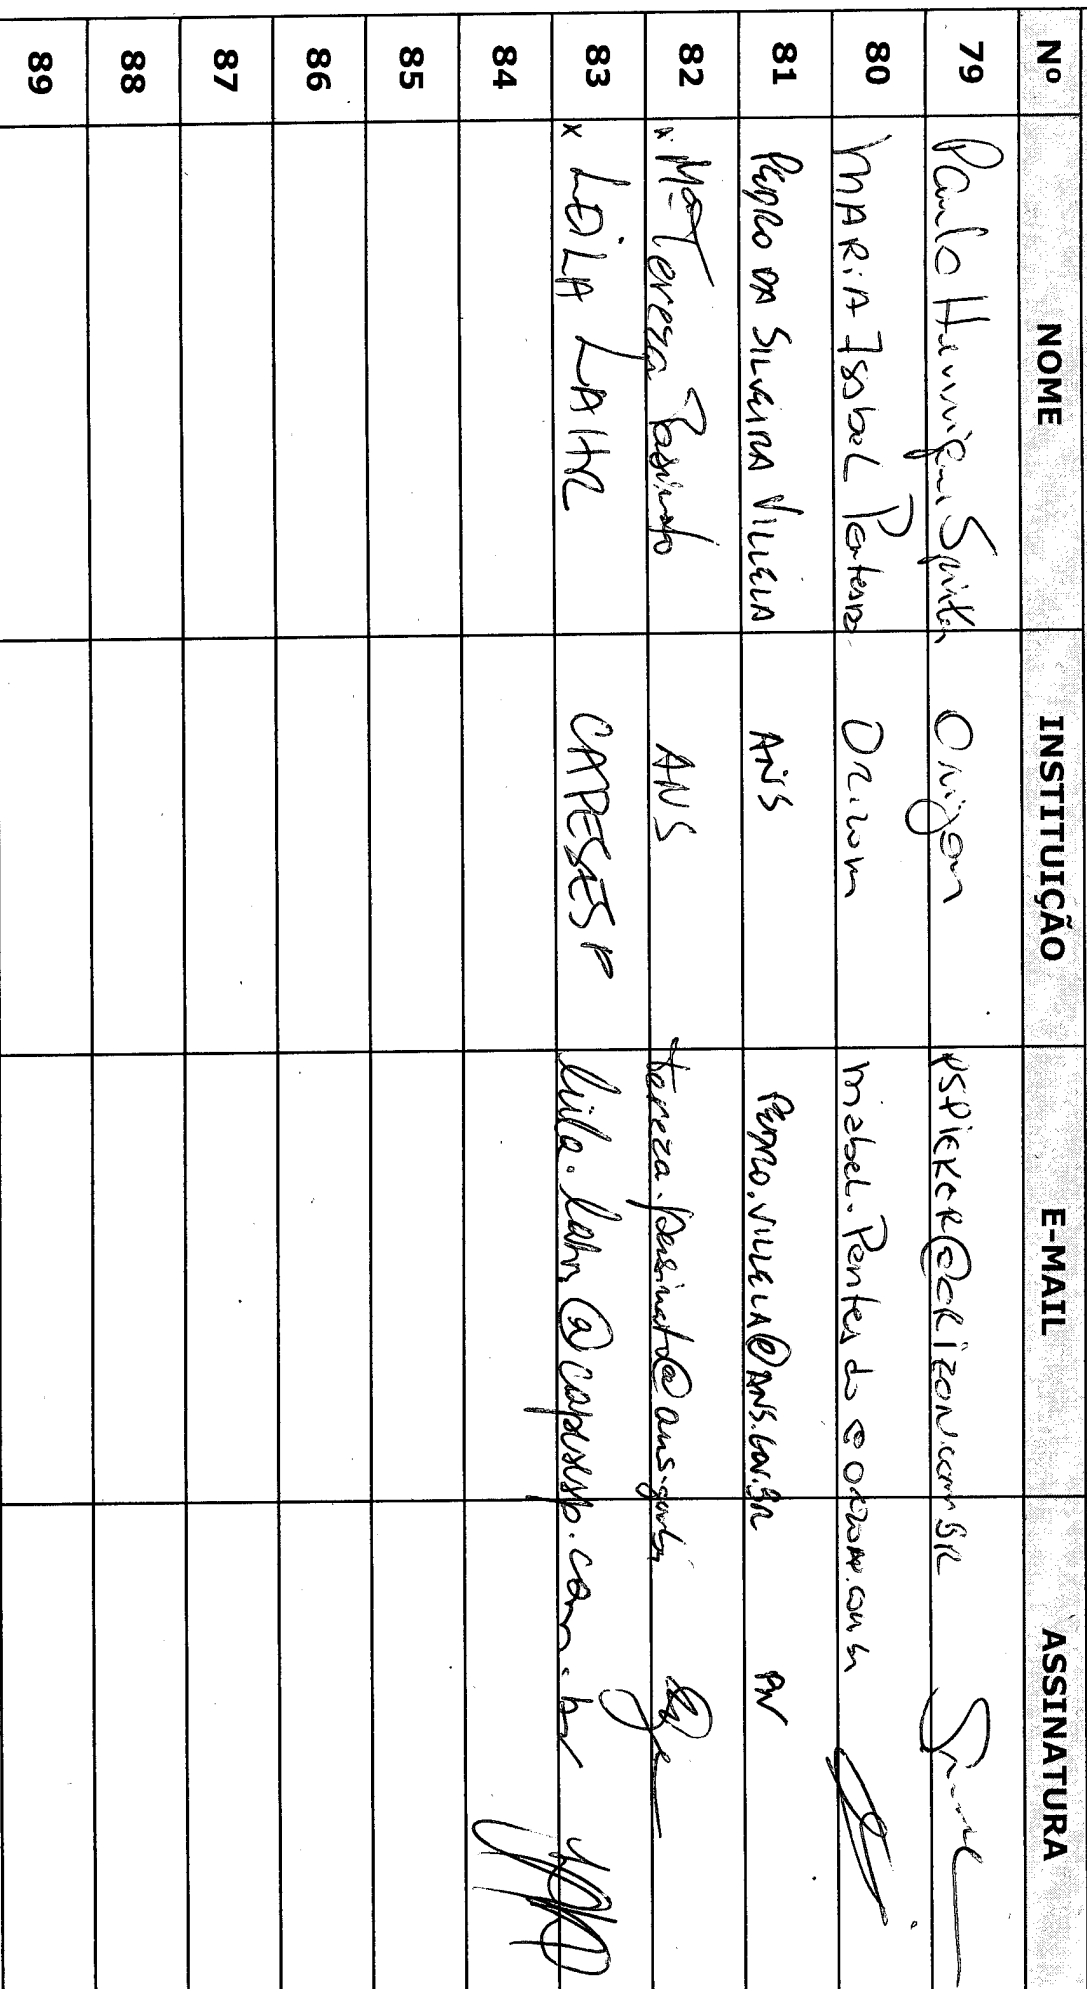 Nº NOME INSTITUIÇÃO E-MAIL ASSINATURA
79 Paulo Henrique Orizon PSPIEKER@ORIZON.com.BR
80 MARIA Isabel Orizon
81 PEDRO DA SILVEIRA VILLELA ANS PEDRO.VILLELA@ANS.GOV.BR PV
82 x Mª Tereza Pasinato ANS tereza.pasinato@ans.gov.br
83 x LEILA LAHR CAPESESP leila.lahr@capesesp.com.br
84
85
86
87
88
89